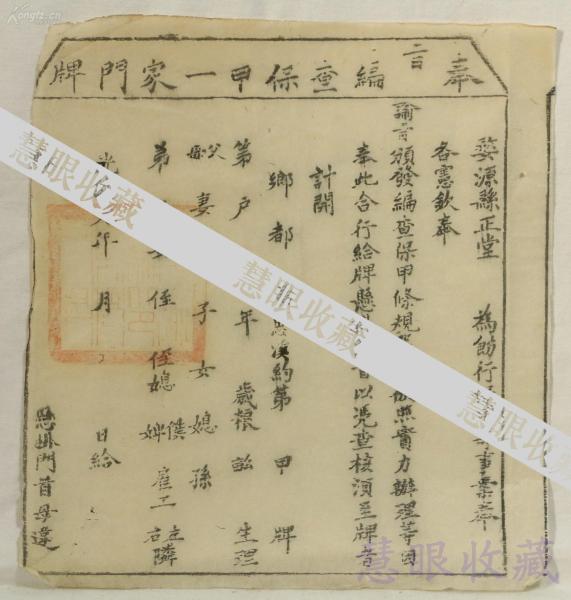 Kongfz.cn
奉
旨
編查保甲一家門牌
婺源縣正堂 為飭行 事案奉
各憲欽奉
諭旨頒發編查保甲條規 照實力辦理等因
奉此合行給牌懸 首以憑查核須至牌者
計開
鄉都 約第 甲 牌
第 戶 年 歲 糧 生理
父 母 妻 子 女 媳 孫
弟 侄 侄媳 婢 僕 雇工 左 右 隣
光 年 月 日給
懸掛門首毋違
慧眼收藏
慧眼收藏
慧眼收藏
慧眼收藏